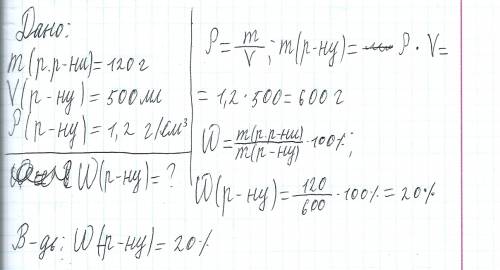 Дано:
m(р.р-ни)=120г
V(р-ну)=500мл
ρ(р-ну)=1,2 г/см³
W(р-ну)=?
ρ=m/V; m(р-ну)= ρ·V=
=1,2·500=600г
W=m(р.р-ни)/m(р-ну)·100%;
W(р-ну)=120/600·100%=20%
В-дь: W(р-ну)=20%